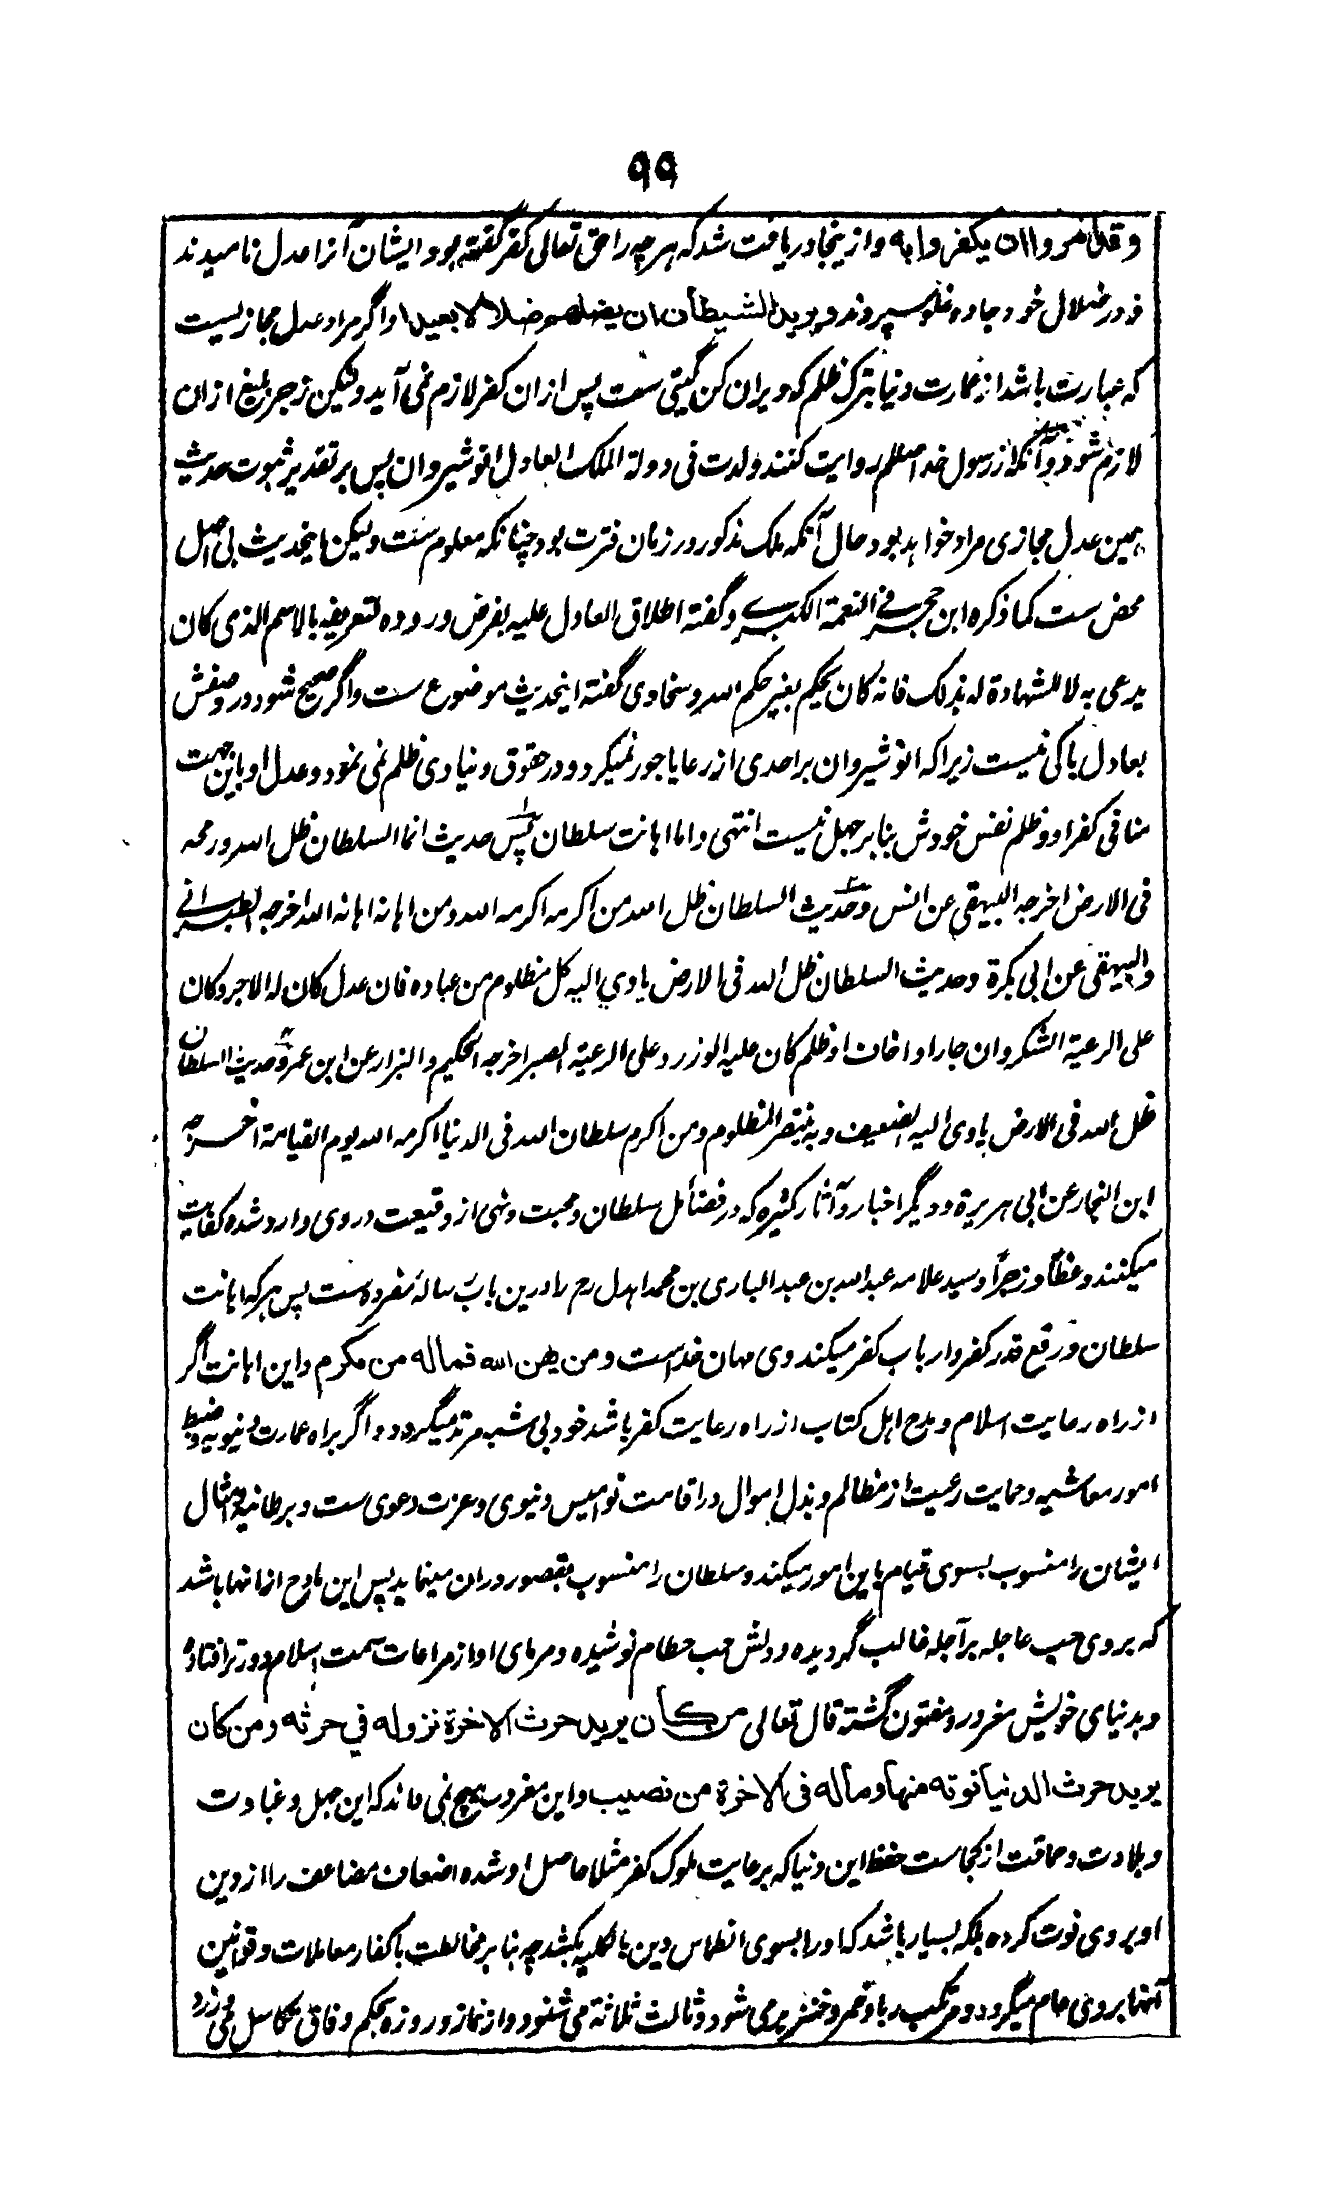 ۹۹
وقد امروا ان یکفروا به و ازینجا دریافت شد که هر چه را حق تعالی کفر گفته بود ایشان آنرا عدل نامیدند
و در ضلال خود جاده غلو سپردند و یرید الشیطان ان یضلهم ضلالا بعیدا و اگر مراد عدل مجازیست
که عبارت باشد از عمارت دنیا بترک ظلم که ویران کن گیتی ست پس ازان کفر لازم نمی آید ولیکن زجر بلیغ ازان
لازم شود و آنکه از رسول خدا صلعم روایت کنند ولدت فی دولة الملک العادل انوشیروان پس بر تقدیر ثبوت حدیث
همین عدل مجازی مراد خواهد بود حال آنکه ملک مذکور در زمان فترت بود چنانکه معلوم ست ولیکن اینحدیث بی اصل
محض ست کما ذکره ابن حجر فی النعمة الکبری و گفته اطلاق العادل علیه بفرض وروده لتعریفه بالاسم الذی کان
یدعی به لا للشهادة له بذلک فانه کان یحکم بغیر حکم الله و سخاوی گفته اینحدیث موضوع ست و اگر صحیح شود در وصفش
بعادل باکی نیست زیرا که انوشیروان بر احدی از رعایا جور نمیکرد و در حقوق دنیاوی ظلم نمی نمود و عدل او باین جهت
منافی کفر او و ظلم نفس خودش بنا بر جهل نیست انتهی و اما اهانت سلطان پس حدیث انما السلطان ظل الله و رمحه
فی الارض اخرجه البیهقی عن انس و حدیث السلطان ظل الله من اکرمه اکرمه الله و من اهانه اهانه الله اخرجه الطبرانی
والبیهقی عن ابی بکرة و حدیث السلطان ظل الله فی الارض یاوی الیه کل مظلوم من عباده فان عدل کان له الاجر و کان
علی الرعیة الشکر و ان جار او اخاف او ظلم کان علیه الوزر و علی الرعیة الصبر اخرجه الحکیم و البزار عن ابن عمر و حدیث السلطان
ظل الله فی الارض یاوی الیه الضعیف و به ینتصر المظلوم و من اکرم سلطان الله فی الدنیا اکرمه الله یوم القیامة اخرجه
ابن النجار عن ابی هریرة و دیگر اخبار و آثار کثیره که در فضائل سلطان و محبت و نهی از وقیعت در وی وارد شده کفایت
میکنند وعظا و زجرا و سید علامه عبدالله بن عبدالباری بن محمد اهدل رح را درین باب رسالۀ مفرده ست پس هر که اهانت
سلطان و رفع قدر کفر و ارباب کفر میکند وی مهان خداست و من یهن الله فماله من مکرم و این اهانت اگر
از راه رعایت اسلام و مدح اهل کتاب از راه رعایت کفر باشد خود بی شبه مرتد میگردد و اگر براه عمارت دنیویه و ضبط
امور معاشیه و حمایت رعیت از مظالم و بذل اموال در اقامت نوامیس دنیوی و عزت دعوی ست و برطانیه و امثال
ایشان را منسوب بسوی قیام باین امور میکند و سلطان را منسوب بقصور دران مینماید پس این مادح ازانها باشد
که بر وی حب عاجله بر آجله غالب گردیده و دلش حب حطام نوشیده و مرمای او از مراعات سمت اسلام دورتر افتاده
و بدنیای خویش مغرور و مفتون گشته قال تعالی من کان یرید حرث الاخرة نزد له فی حرثه و من کان
یرید حرث الدنیا نوته منها و ماله فی الاخرة من نصیب و این مغرور هیچ نمی داند که این جهل و غباوت
و بلادت و حماقت از کجاست حفظ این دنیا که برعایت ملوک کفر مثلا حاصل او شده اضعاف مضاعف را از دین
او بر وی فوت کرده بلکه بسیار باشد که او را بسوی انطماس دین بالکلیه بکشد چه بنا بر مخالطت با کفار معاملات و قوانین
آنها بر وی حام میگردد و مرتکب ربا و خمر و خنزیر می شود و ثالث ثلاثة می شنود و از نماز و روزه بحکم وفاق تکاسل می ورزد